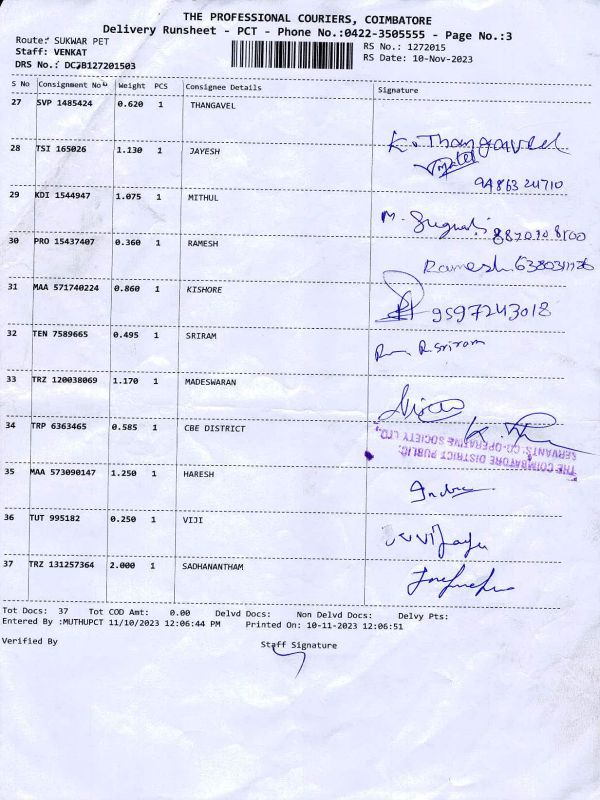 THE PROFESSIONAL COURIERS, COIMBATORE
Delivery Runsheet - PCT - Phone No.:0422-3505555 - Page No.:3
Route: SUKWAR PET
Staff: VENKAT
DRS No.: DCJB127201503
RS No.: 1272015
RS Date: 10-Nov-2023
S No Consignment No Weight PCS Consignee Details Signature
27 SVP 1485424 0.620 1 THANGAVEL K. Thangavel
28 TSI 165026 1.130 1 JAYESH
9486324710
29 KDI 1544947 1.075 1 MITHUL M.
30 PRO 15437407 0.360 1 RAMESH Ramesh
31 MAA 571740224 0.860 1 KISHORE 9597243018
32 TEN 7589665 0.495 1 SRIRAM R. Sriram
33 TRZ 120038069 1.170 1 MADESWARAN
34 TRP 6363465 0.585 1 CBE DISTRICT
THE COIMBATORE DISTRICT PUBLIC
SERVANTS' CO-OPERATIVE SOCIETY LTD.,
35 MAA 573090147 1.250 1 HARESH Indra
36 TUT 995182 0.250 1 VIJI
37 TRZ 131257364 2.000 1 SADHANANTHAM
Tot Docs: 37 Tot COD Amt: 0.00 Delvd Docs: Non Delvd Docs: Delvy Pts:
Entered By :MUTHUPCT 11/10/2023 12:06:44 PM Printed On: 10-11-2023 12:06:51
Verified By Staff Signature